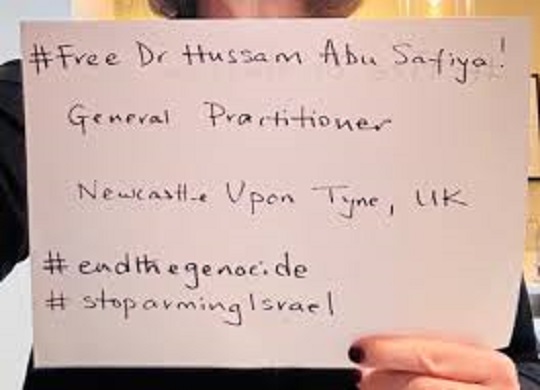 #Free Dr Hussam Abu Safiya!
General Practitioner
Newcastle Upon Tyne, UK
#endthegenocide
# stoparmingIsrael